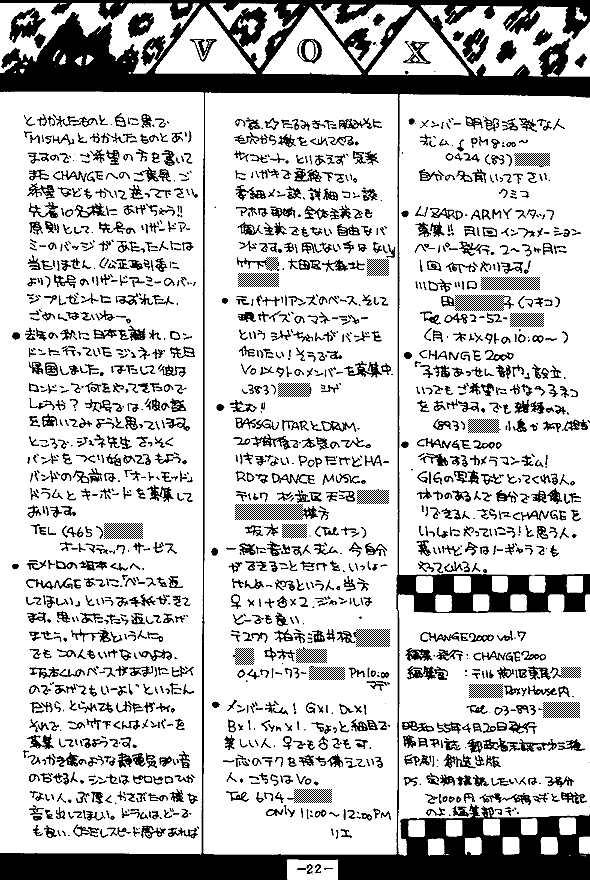 VOX
とかかれたものと、白に黒で
「MISHA」とかかれたものとあり
ますので、ご希望の方を書いて
また CHANGEへのご意見、ご
希望などもかいて送って下さい。
先着10名様に あげちゃう!!
原則として、先号のリザードアー
ミーのバッジがあたった人には
当たりません。(公正取引委に
より)先号のリザードアーミーのバッ
ジプレゼントに はずれたん、
ごめんなさいねー。
● 去年の秋に日本を離れ、ロン
ドンに行っていたジュネが先日
帰国しました。はたして彼は
ロンドンで何をやってきたので
しょうか? 次号では、彼の話
を聞いてみようと思っています。
ところで、ジュネ先生 さっそく
バンドをつくり始めてるもよう。
バンドの名前は、「オート・モッド」
ドラムとキーボードを募集して
おります。
TEL (465)
オートマティック・サービス
● 元メトロの坂本くんへ。
CHANGEあてに、「ベースを返
してほしい」というお手紙がきて
ます。思いあたったら返してあげ
ませう。竹下君という人に。
でも この人もいけないのよね。
坂本くんのベースがあまりにヒドイ
のであげてもいーよ」といったん
だから、とられてもしかたがない。
それで、この竹下くんはメンバーを
募集しているようです。
「ひっかき傷のような静電気ぽい音
のだせる人。シンセはピロピロでか
ない人。ぶ厚くかさぶたの様な
音を出してほしい。ドラムは、どーで
も良い、(ただしスピード感があれば
の話、)たるみきった脳みそに
毛穴から機をくれてやる。
サイコビート。とりあえず 気楽
に ハガキで連絡下さい。
委細メン談、詳細コン談、
アホは即断。全体主義でも
個人主義でもない 自由なバ
ンドです。利用しない手はない」
竹下 、大田区大森北
● 元バナナリアンズのベース、そして
現サイズのマネージャー
という シゲちゃんがバンドを
作りたい! そうです。
Vo以外のメンバーを募集中
(383) シゲ
● 求む!!
BASSGUITARとDRUM.
20才前後で本気のひと。
リキまない、PopだけどHA-
RDなDANCE MUSIC.
テ167 杉並区天沼
様方
坂本 (Telナシ)
● 一緒に音出す人求ム、今自分
ができることだけを、いっしょー
けんめーやるという人。当方
♀×1+♂×2、ジャンルは
どーでも良い。
テ277 柏市酒井根
中村
0471-73- PM10:00
マデ
● メンバー求ム! G×1. Dr×1
B×1. Syn×1. ちょっと細目で
美しい人。♀でも♂でも可.
一応のテクを持ち備えている
人。こちらはVo.
Tel 674-
ONLY 11:00〜12:00PM
リエ
● メンバー 明朗活発な人
求ム。 PM8:00〜
0424 (83)
自分の名前いって下さい
クミコ
● LIZARD・ARMY スタッフ
募集!! 月1回 インフォメーション
ペーパー発行。2〜3ヶ月に
1回 何かやります!
川口市川口
田 子 (マキコ)
Tel 0482-52-
(月・木以外の10:00〜)
● CHANGE 2000
「子猫あっせん部門」設立.
いつでもご希望にかなう子ネコ
をあげます。でも雑種のみ.
(893) 小嶌
● CHANGE 2000
行動するカメラマン求ム!
GIGの写真などとってくれる人。
体力のある人で自分で現像した
りできる人。さらにCHANGEを
いっしょにやっていこう!と思う人。
悪いけど今はノーギャラでも
やってくれる人。
CHANGE2000 vol.7
編集・発行: CHANGE2000
編集室 : テ116 荒川区東尾久
RoxyHouse内.
Tel. 03-893-
昭和55年4月20日発行
印刷: 創造出版
P.S. 定期購読したい人は、3号分
で1000円 何号〜何号マデと明記
のより、編集部マデ.
-22-